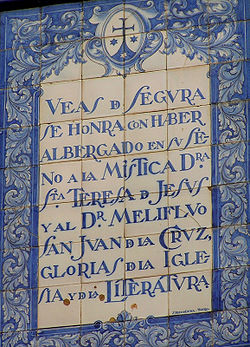 VEAS D SEGVRA
SE HONRA CON HABER
ALBERGADO EN SV SE-
NO A LA MISTICA DRA
STA TERESA D JESVS
Y AL DR MELIFLVO
SAN JVAN D LA CRVZ,
GLORIAS D LA IGLE-
SIA Y D LA LITERATVRA.